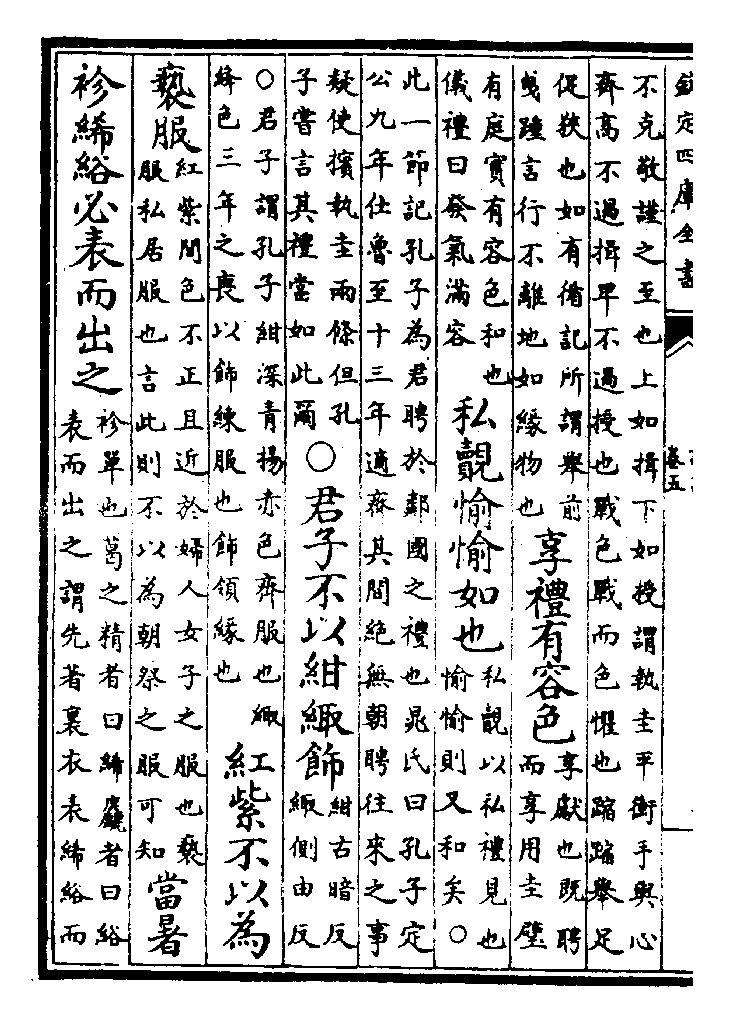 欽定四庫全書
卷五
不克敬謹之至也上如揖下如授謂執圭平衡手與心
齊高不過揖卑不過授也戰色戰而色懼也蹜蹜舉足
促狹也如有循記所謂舉前
曳踵言行不離地如緣物也
享禮有容色
享獻也既聘
而享用圭璧
有庭實有容色和也
儀禮曰發氣滿容
私覿愉愉如也
私覿以私禮見也
愉愉則又和矣○
此一節記孔子為君聘於鄰國之禮也晁氏曰孔子定
公九年仕魯至十三年適齊其間絕無朝聘往來之事
疑使擯執圭兩條但孔
子嘗言其禮當如此爾
○君子不以紺緅飾
紺古暗反
緅側由反
○君子謂孔子紺深青揚赤色齊服也緅
絳色三年之喪以飾練服也飾領緣也
紅紫不以為
褻服
紅紫間色不正且近於婦人女子之服也褻
服私居服也言此則不以為朝祭之服可知
當暑
袗絺綌必表而出之
袗單也葛之精者曰絺麤者曰綌
表而出之謂先著裏衣表絺綌而